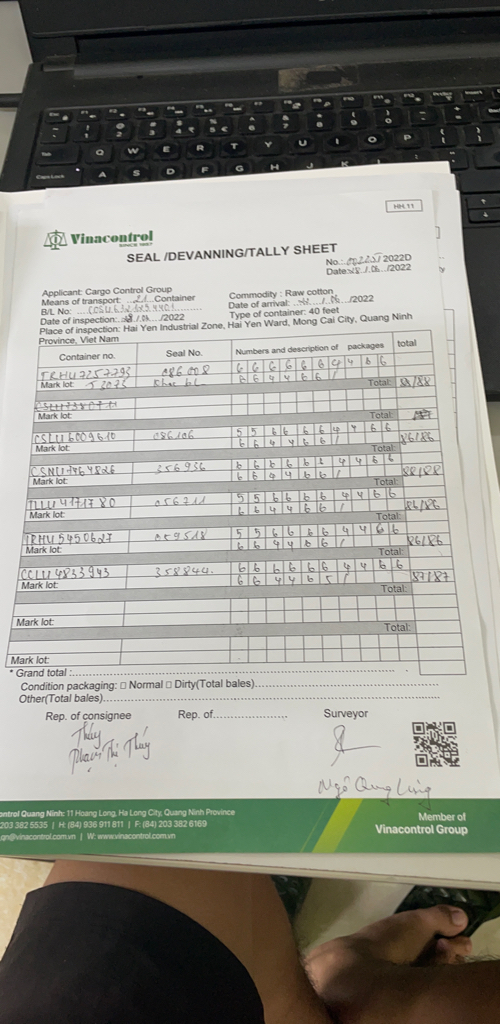 HH.11
Vinacontrol
SINCE 1957
SEAL /DEVANNING/TALLY SHEET
No.: 2022D
Date: 28/06/2022
Applicant: Cargo Control Group
Commodity : Raw cotton
Means of transport: 21 Container
Date of arrival: /06/2022
B/L No:
Type of container: 40 feet
Date of inspection: 28/06/2022
Place of inspection: Hai Yen Industrial Zone, Hai Yen Ward, Mong Cai City, Quang Ninh
Province, Viet Nam
Container no. Seal No. Numbers and description of packages total
TRHU7257793 086008 6 6 6 6 6 6 4 4 6 6
Mark lot: 6 6 4 4 6 6 / Total: 88/88
Mark lot: Total:
CSLU6009610 086106 5 5 6 6 6 6 4 4 6 6
Mark lot: 6 6 4 4 6 6 / Total: 86/86
356936 6 6 6 6 6 6 4 4 6 6
Mark lot: 6 6 4 4 6 6 / Total: 88/88
056211 5 5 6 6 6 6 4 4 6 6
Mark lot: 6 6 4 4 6 6 / Total: 86/86
TRHU5450627 059518 5 5 6 6 6 6 4 4 6 6
Mark lot: 6 6 4 4 6 6 / Total: 86/86
CCLU4833943 358844. 6 6 6 6 6 6 4 4 6 6
Mark lot: 6 6 4 4 6 5 / Total: 87/87
Mark lot: Total:
Mark lot:
* Grand total :
Condition packaging: □ Normal □ Dirty(Total bales)
Other(Total bales)
Rep. of consignee Rep. of Surveyor
Thúy
Phạm Thị Thúy
Ngô Quang
ontrol Quang Ninh: 11 Hoang Long, Ha Long City, Quang Ninh Province
203 382 5535 | H: (84) 936 911 811 | F: (84) 203 382 6169
qn@vinacontrol.com.vn | W: www.vinacontrol.com.vn
Member of
Vinacontrol Group